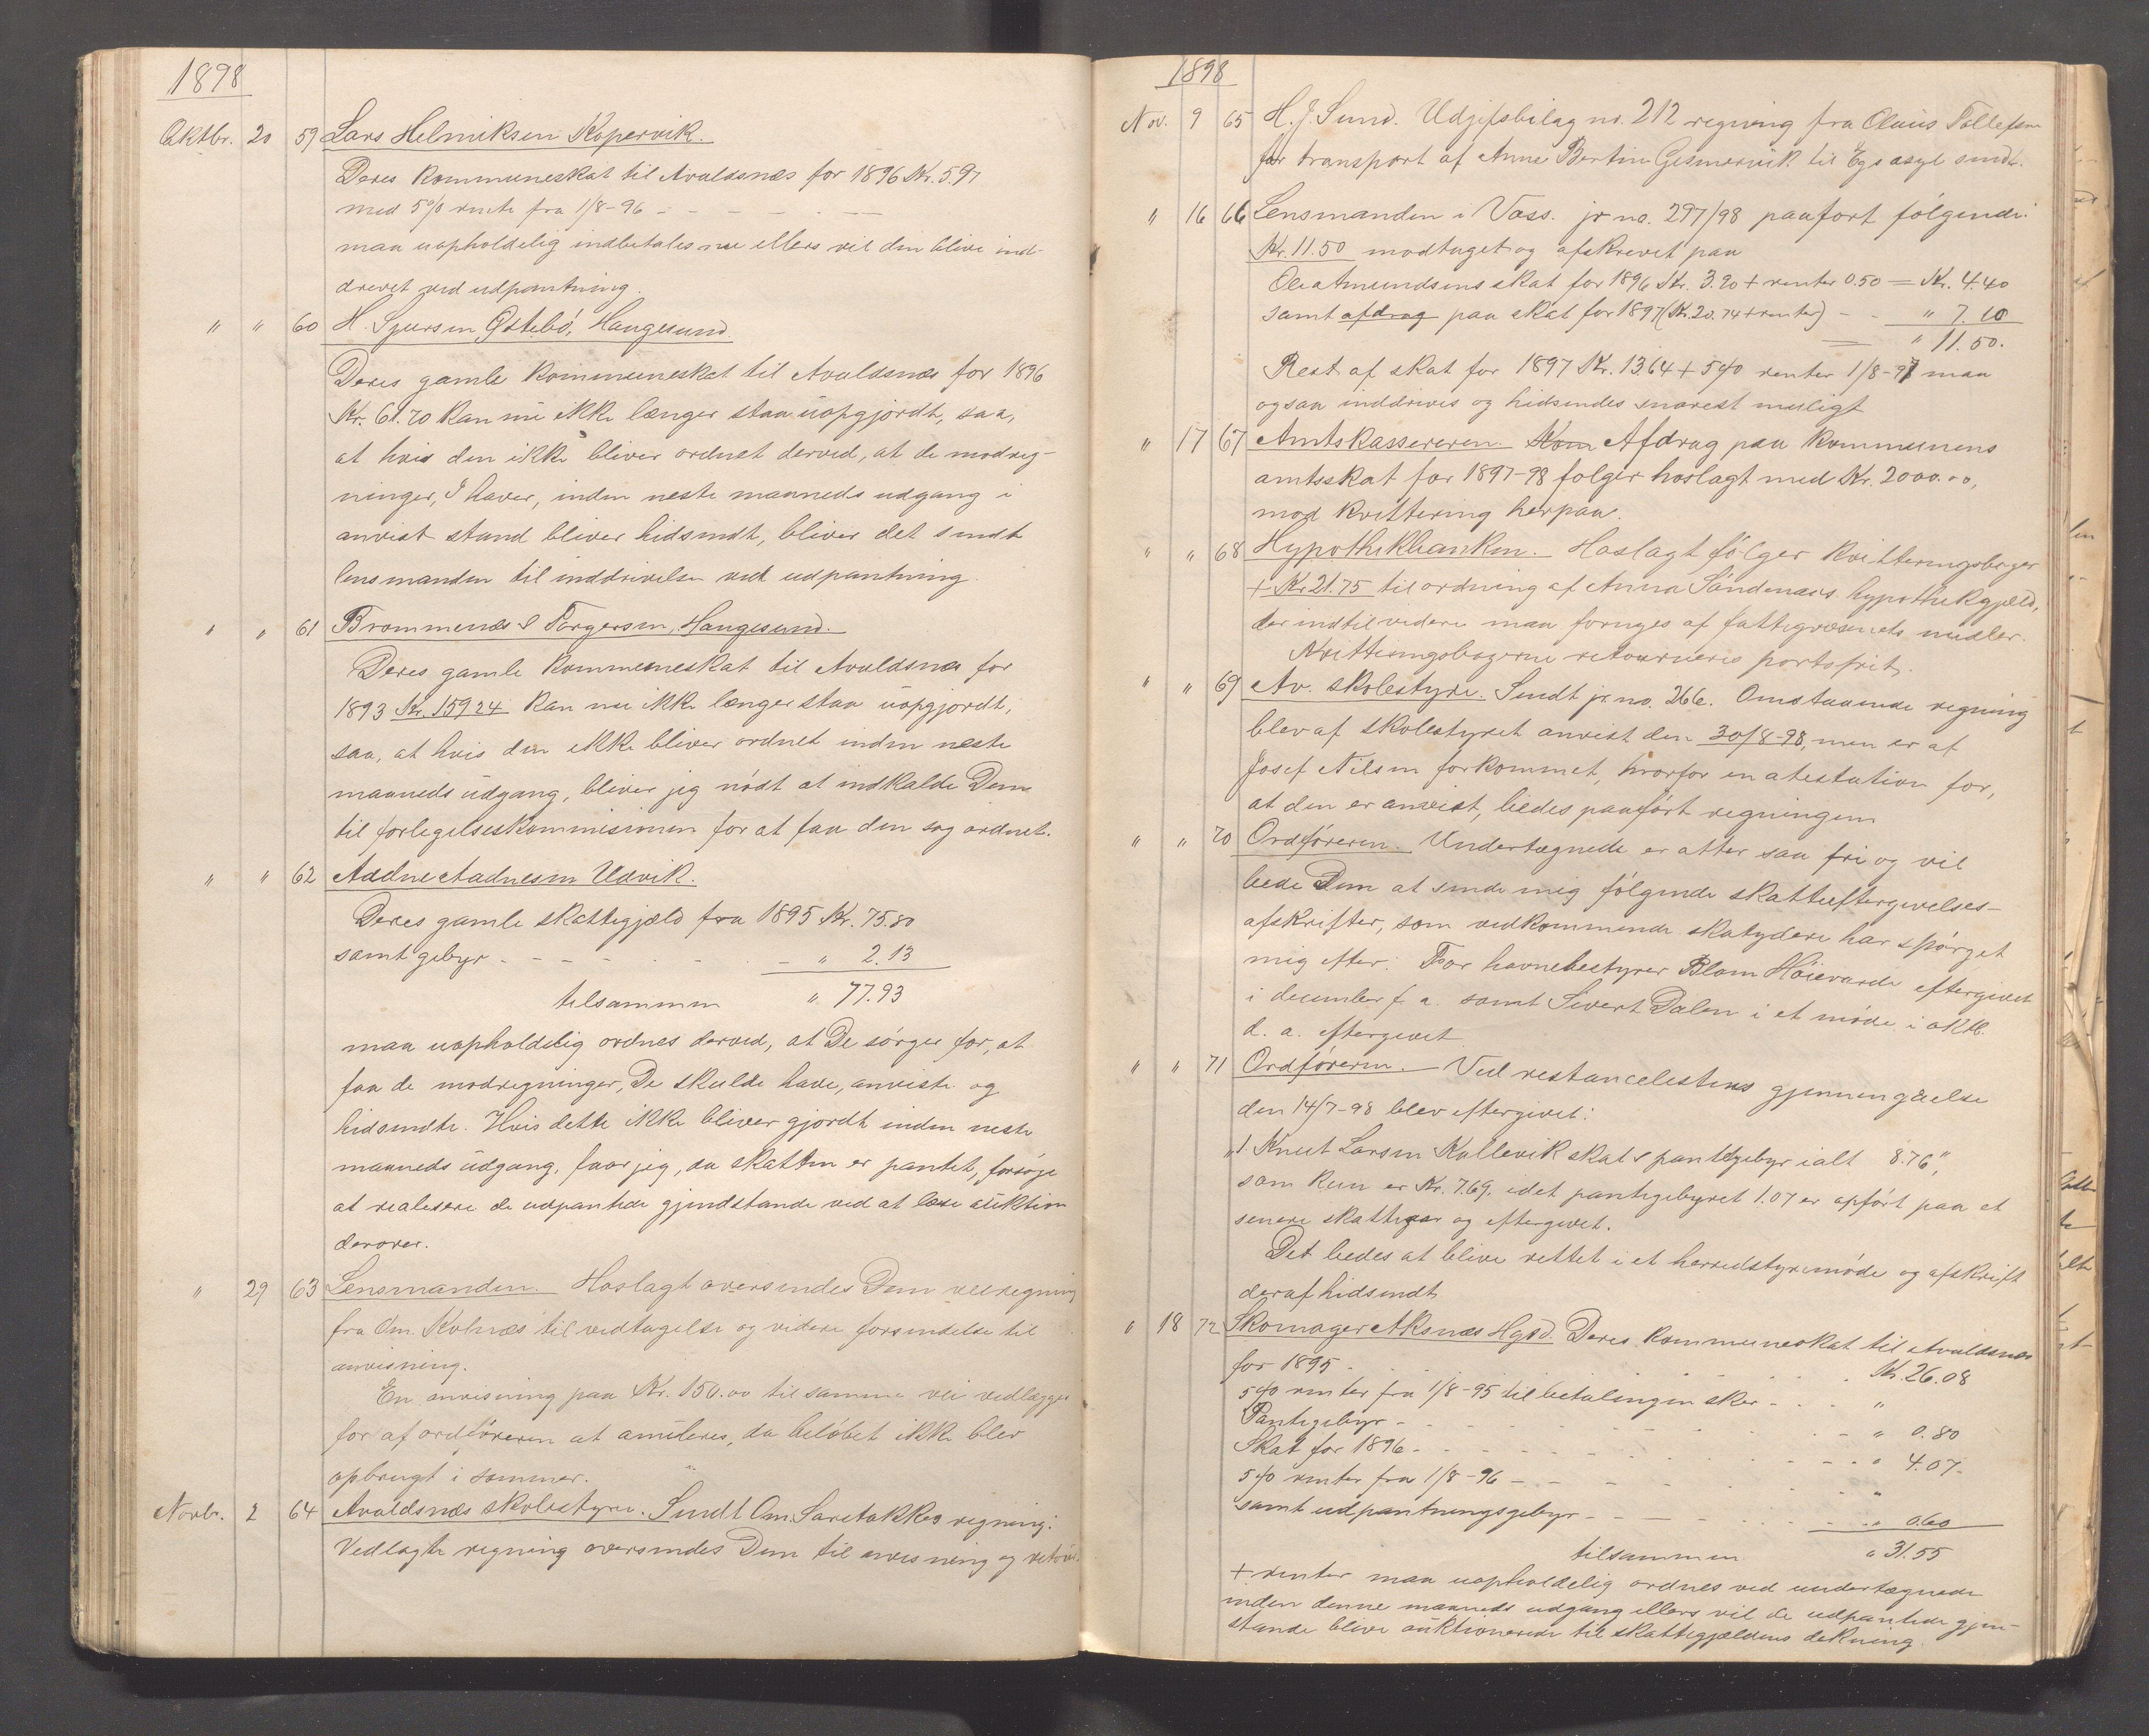 1898
Oktbr. 20 59 Lars Helmiksen Kopervik.
Deres kommuneskat til Avaldsnæs for 1896 Kr. 5.97
med 5% rente fra 1/8-96 - - - - - -
maa uopholdelig indbetales nu ellers vil den blive ind-
drevet ved udpantning.
" " 60 H. Sjursen Østebö, Haugesund.
Deres gamle kommuneskat til Avaldsnæs for 1896
Kr. 61.70 kan nu ikke længer staa uopgjordt, saa,
at hvis den ikke bliver ordnet derved, at de modreg-
ninger, I haver, inden neste maaneds udgang i
anvist stand bliver hidsendt, bliver det sendt
lensmanden til inddrivelse ved udpantning.
" " 61 Brommenæs & Torgersen, Haugesund.
Deres gamle kommuneskat til Avaldsnæs for
1893 Kr. 159.24 kan nu ikke længer staa uopgjordt,
saa, at hvis den ikke bliver ordnet inden neste
maaneds udgang, bliver jeg nödt at indkalde Dem
til forligelseskommisionen for at faa den sag ordnet.
" " 62 Aadne Aadnesen Udvik.
Deres gamle skattegjæld fra 1895 Kr. 75.80
samt gebyr - - - - - - - " 2.13
tilsammen " 77.93
maa uopholdelig ordnes derved, at De sörger for, at
faa de modregninger, De skulde have, anviste og
hidsendte. Hvis dette ikke bliver gjordt inden neste
maaneds udgang, faar jeg, da skatten er pantet, forsöge
at realisere de udpantede gjendstande ved at lade auktion
derover.
" 29 63 Lensmanden. Hoslagt oversendes Dem veiregning
fra Om. Kolnæs til vedtagelse og videre forsendelse til
anvisning.
En anvisning paa Kr. 150.00 til samme vei vedlægges
for af ordföreren at anuleres, da belöbet ikke blev
opbrugt i sommer.
Novbr. 2 64 Avaldsnæs skolestyre. Sendt Om. regning:
Vedlagte regning oversendes Dem til anvisning og retour.
1898
Nov. 9 65 H. J. Sund. Udgifsbilag no. 212 regning fra Olaus Tollefsen
for transport af Anne Bertine Gismervik til Egs asyl sendt.
" 16 66 Lensmanden i Vass. jr no. 297/98 paafört fölgende:
Kr. 11.50 modtaget og afskrevet paa
Ole Amundsens skat for 1896 Kr. 3.90 + renter 0.50 = Kr. 4.40
samt afdrag paa skat for 1897 (Kr. 20.74 + renter) - - " 7.10
= " 11.50.
Rest af skat for 1897 Kr. 13.64 + 5% renter 1/8-97 maa
ogsaa inddrives og hidsendes snarest muligt
" 17 67 Amtskassereren. Kom Afdrag paa kommunens
amtsskat for 1897-98 fölger hoslagt med Kr. 2000.00,
mod kvittering herpaa.
" " 68 Hypothekbanken. Hoslagt fölger kvitteringsböger
+ Kr. 21.75 til ordning af Anna Söndenaas hypothekgjeld,
der indtil videre maa forruges af fattigvæsenets midler.
Kvitteringsbögerne retourneres portofrit.
" " 69 Av. skolestyre. Sendt jr. no. 266. Omstaaende regning
blev af skolestyret anvist den 30/8-98, men er af
Josef Nilsen forkommet, hvorfor en atestation for,
at den er anvist, bedes paafört regningen
" " 70 Ordföreren. Undertegnede er atter saa fri og vil
bede Dem at sende mig fölgende skatteeftergivelses-
afskrifter, som vedkommende skatydere har spörget
mig efter: For havnebestyrer Blom Höievarde eftergivet
i december f. a. samt Sivert Dalen i et möde i oktb.
d. a. eftergivet
" " 71 Ordföreren. Ved restancelistens gjennemgaaelse
den 14/7-98 blev eftergivet:
"1. Knut Larsen Kallevik skat & pantegebyr ialt 8.76",
som kun er Kr. 7.69, idet pantegebyret 1.07 er opfört paa et
senere skatteaar og eftergivet.
Det bedes at blive rettet i et herredstyremöde og afskrift
deraf hidsendt
" 18 72 Skomager Aksnæs Hgsd. Deres kommuneskat til Avaldsnæs
for 1895 - - - - - - - - Kr. 26.08
5% renter fra 1/8-95 til betalingen sker - - - "
Pantegebyr - - - - - - - - " 0.80
Skat for 1896 - - - - - - - - " 4.07
5% renter fra 1/8-96 - - - - - - - "
samt udpantningsgebyr - - - - - - - " 0.60
tilsammen " 31.55
+ renter maa uopholdelig ordnes ved undertegnede
inden denne maaneds udgang ellers vil de udpantede gjen-
stande blive auktionerede til skattegjældens dekning.